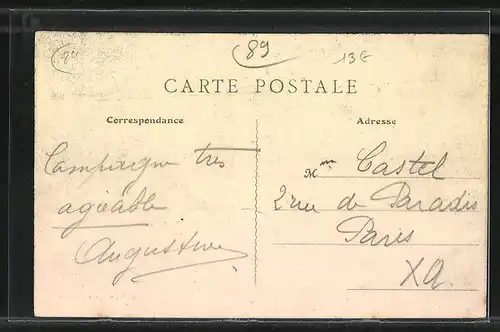 89
89
13E
CARTE POSTALE
Correspondance
Adresse
Campagne très
agréable
Augustine
Mme Castel
2 rue de Paradis
Paris
XA.